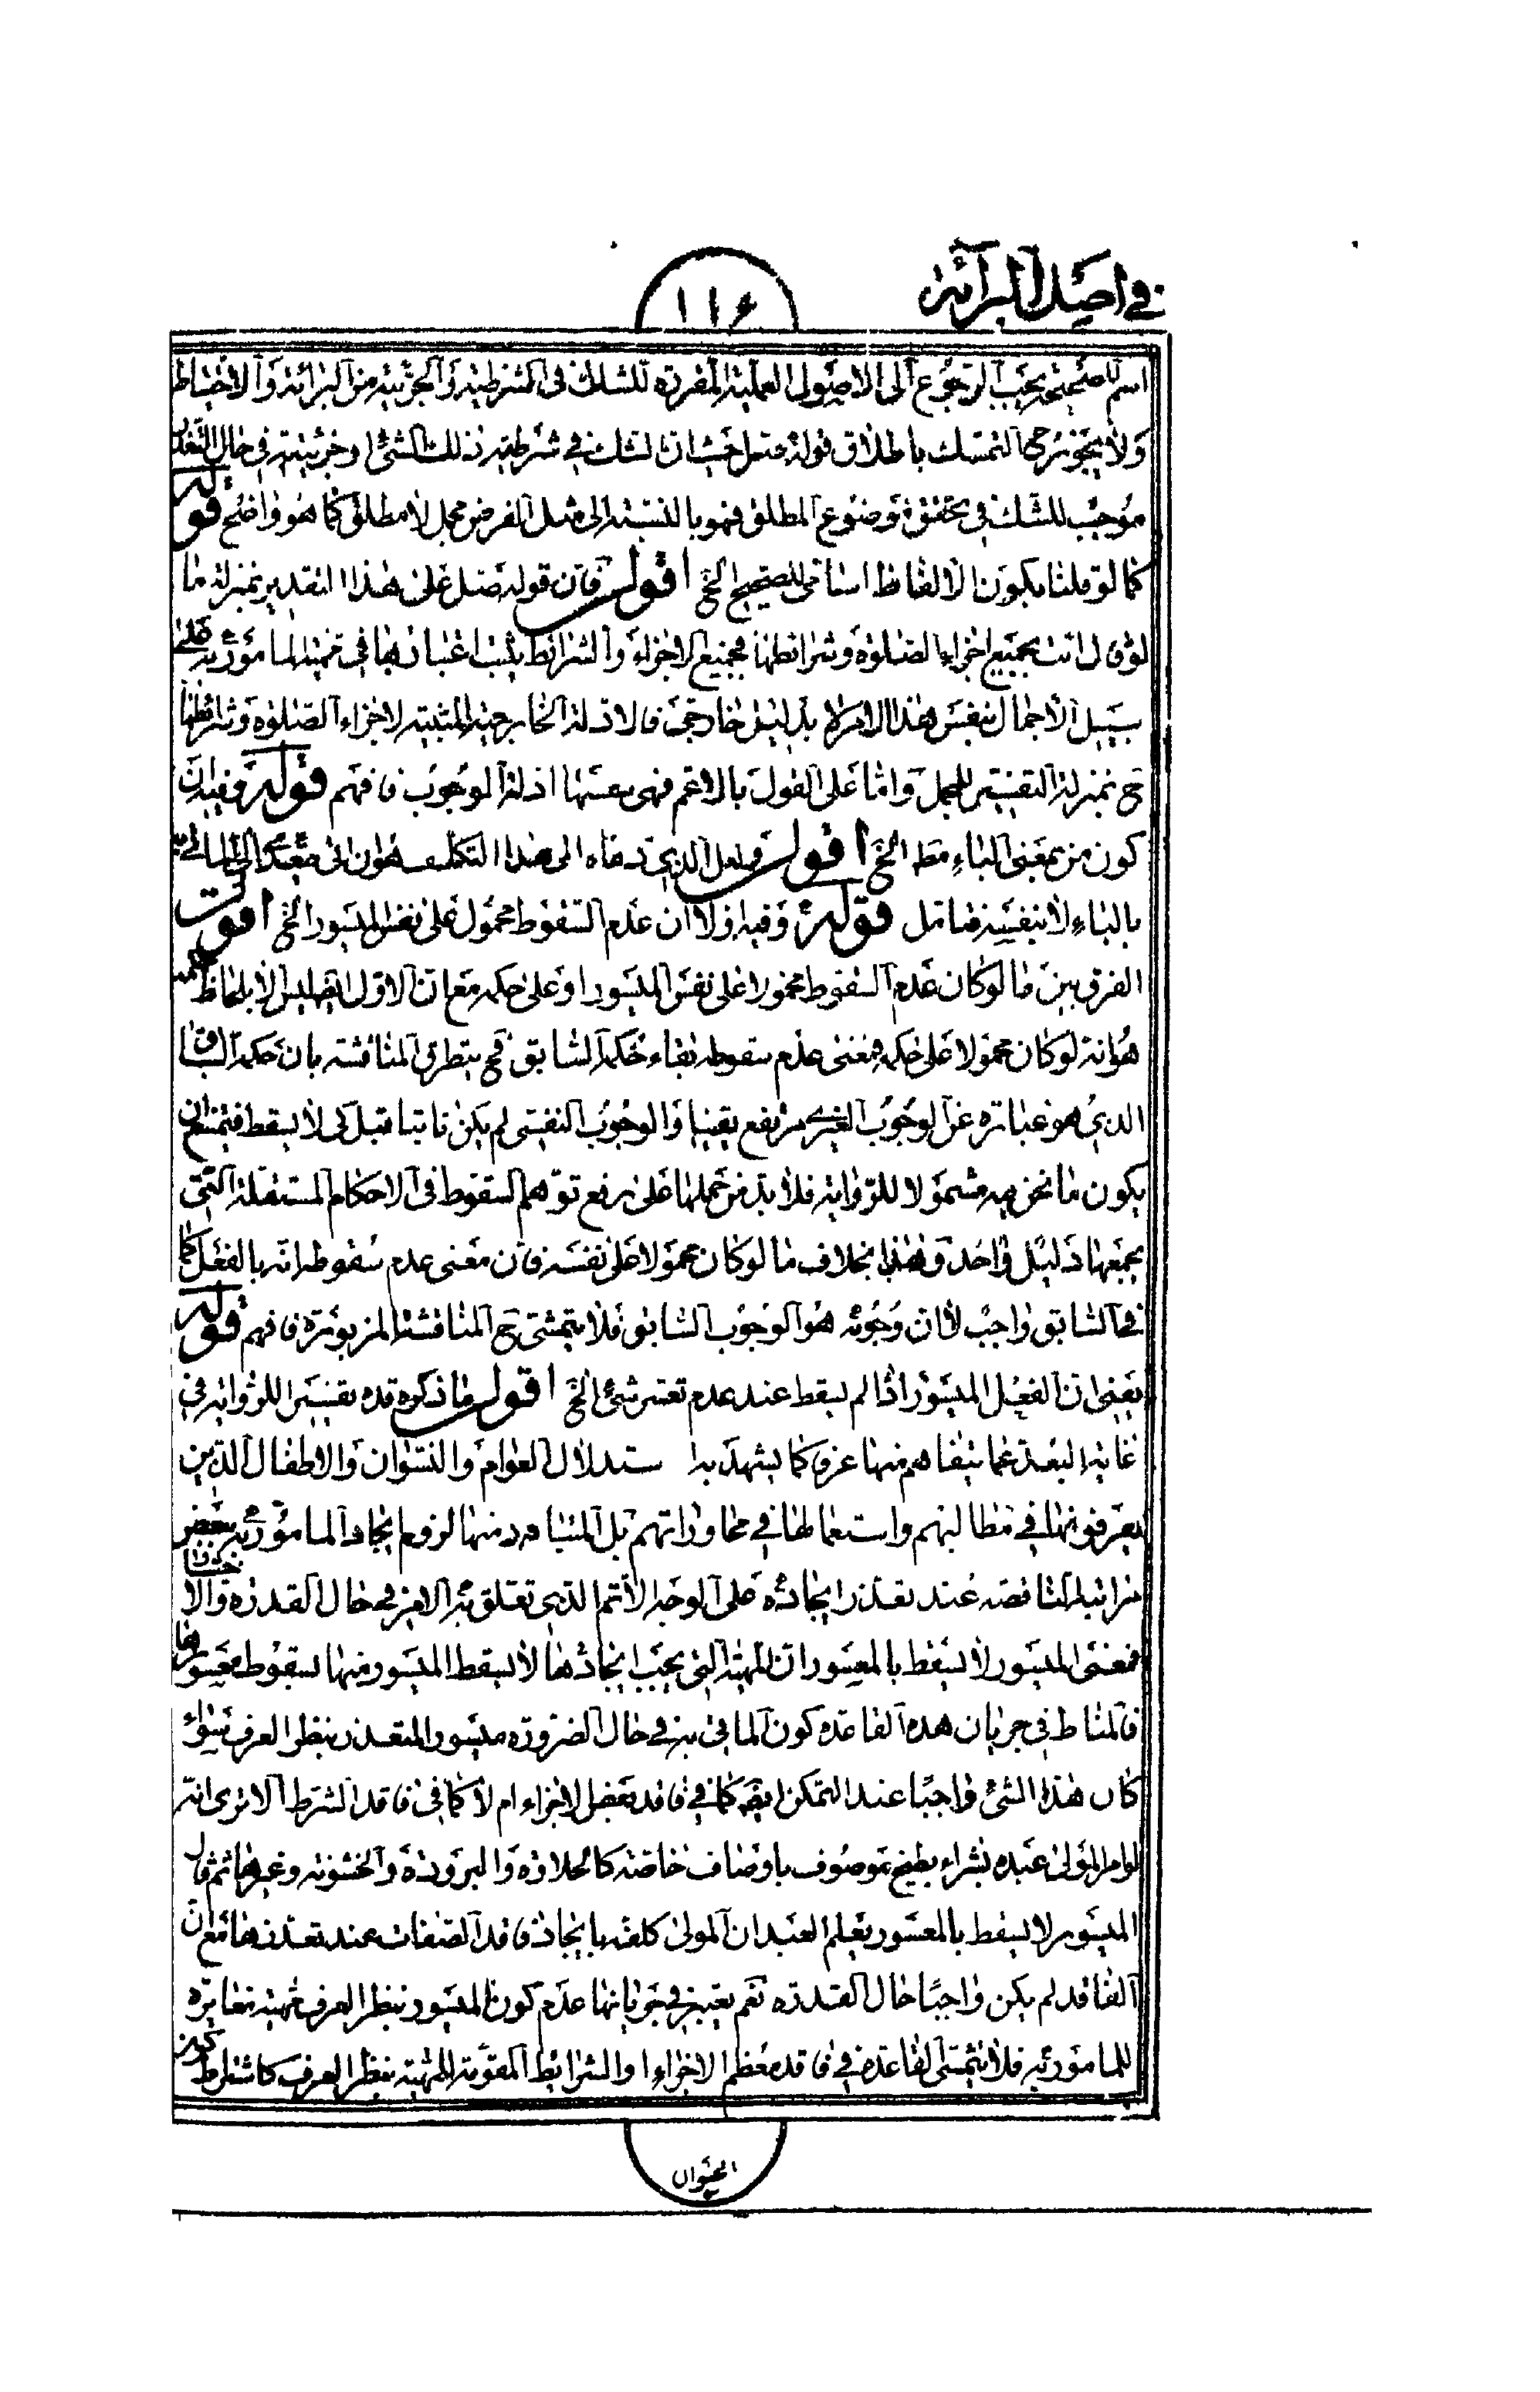 في اصل البرائة
١١۶
اسم للصحيحة يجب الرجوع الى الاصول العملية المقررة للشك فى الشرطية والجزئية من البرائة والاحتياط
ولا يجوز ح التمسك باطلاق قوله صل حيث ان الشك في شرطية ذلك الشئ او جزئيته في حال التعذر
موجب للشك في تحقق موضوع المطلق فهو بالنسبة الى مثل الفرض مجمل لا مطلق كما هو واضح قوله
كما لو قلنا بكون الالفاظ اسامى للصحيح الخ اقول فان قوله صل على هذا التقدير بمنزلة ما
لو قال ائت بجميع اجزاء الصلوة وشرائطها فجميع الاجزاء والشرائط يثبت اعتبارها في مهية المامور به على
سبيل الاجمال بنفس هذا الامر لا بدليل خارجى فالادلة الخارجية المثبتة لاجزاء الصلوة وشرائطها
ح بمنزلة التفسير للمجمل واما على القول بالاعم فهى بعينها ادلة الوجوب فافهم قوله وفيه ان
كون من بمعنى الباء مط الخ اقول ولعل الذي دعاه الى هذا التكلف هو ان اتى يتعدى الى الماتى به
بالباء لا بنفسه فتامل قوله وفيه اولا ان عدم السقوط محمول على نفس الميسور الخ اقول
الفرق بين ما لو كان عدم السقوط محمولا على نفس الميسور او على حكمه مع ان الاول ايضا ليس الا بلحاظ حكمه
هو انه لو كان محمولا على حكمه فمعنى عدم سقوطه بقاء حكمه السابق فح يتطرق المناقشة بان حكمه السابق
الذي هو عبارة عن الوجوب الغيرى مرتفع يقينا والوجوب النفسى لم يكن ثابتا قبل كى لا يسقط فيمتنع ان
يكون ما نحن فيه مشمولا للرواية فلا بد من حملها على رفع توهم السقوط فى الاحكام المستقلة التى
يجمعها دليل واحد وهذا بخلاف ما لو كان محمولا على نفسه فان معنى عدم سقوطه انه بالفعل كما
فى السابق واجب لا ان وجوبه هو الوجوب السابق فلا يتمشى ح المناقشة المزبورة فافهم قوله
يعنى ان الفعل الميسور اذا لم يسقط عند عدم تعسر شئ الخ اقول ما ذكره قده تفسيرا للرواية في
غاية البعد عما يتفاهم منها عرفا كما يشهد به ا ستدلال العوام والنسوان والاطفال الذين
يعرفونها في مطالبهم واستعمالها في محاوراتهم بل المتبادر منها لزوم ايجاد المامور به ببعض
مراتبه الناقصة عند تعذر ايجاده على الوجه الاتم الذي تعلق به الامر في حال القدرة والاختيار
فمعنى الميسور لا يسقط بالمعسور ان المهية التى يجب ايجادها لا يسقط الميسور منها بسقوط معسورها
فالمناط في جريان هذه القاعدة كون الماتى به في حال الضرورة ميسور المتعذر بنظر العرف سواء
كان هذا الشئ واجبا عند التمكن ايضا كما في فاقد بعض الاجزاء ام لا كما في فاقد الشرط الا ترى انه
لو امر المولى عبده بشراء بطيخ موصوف باوصاف خاصة كالحلاوة والبرودة والخشونة وغيرها ثم قال
الميسور لا يسقط بالمعسور يعلم العبد ان المولى كلفه بايجاد فاقد الصفات عند تعذرها مع ان
الفاقد لم يكن واجبا حال القدرة نعم يعتبر في جريانها عدم كون الميسور بنظر العرف مهية مغايرة
للمامور به فلا يتمشى القاعدة في فاقد معظم الاجزاء او الشرائط المقومة للمهية بنظر العرف كاشتراط كون
الحيوان